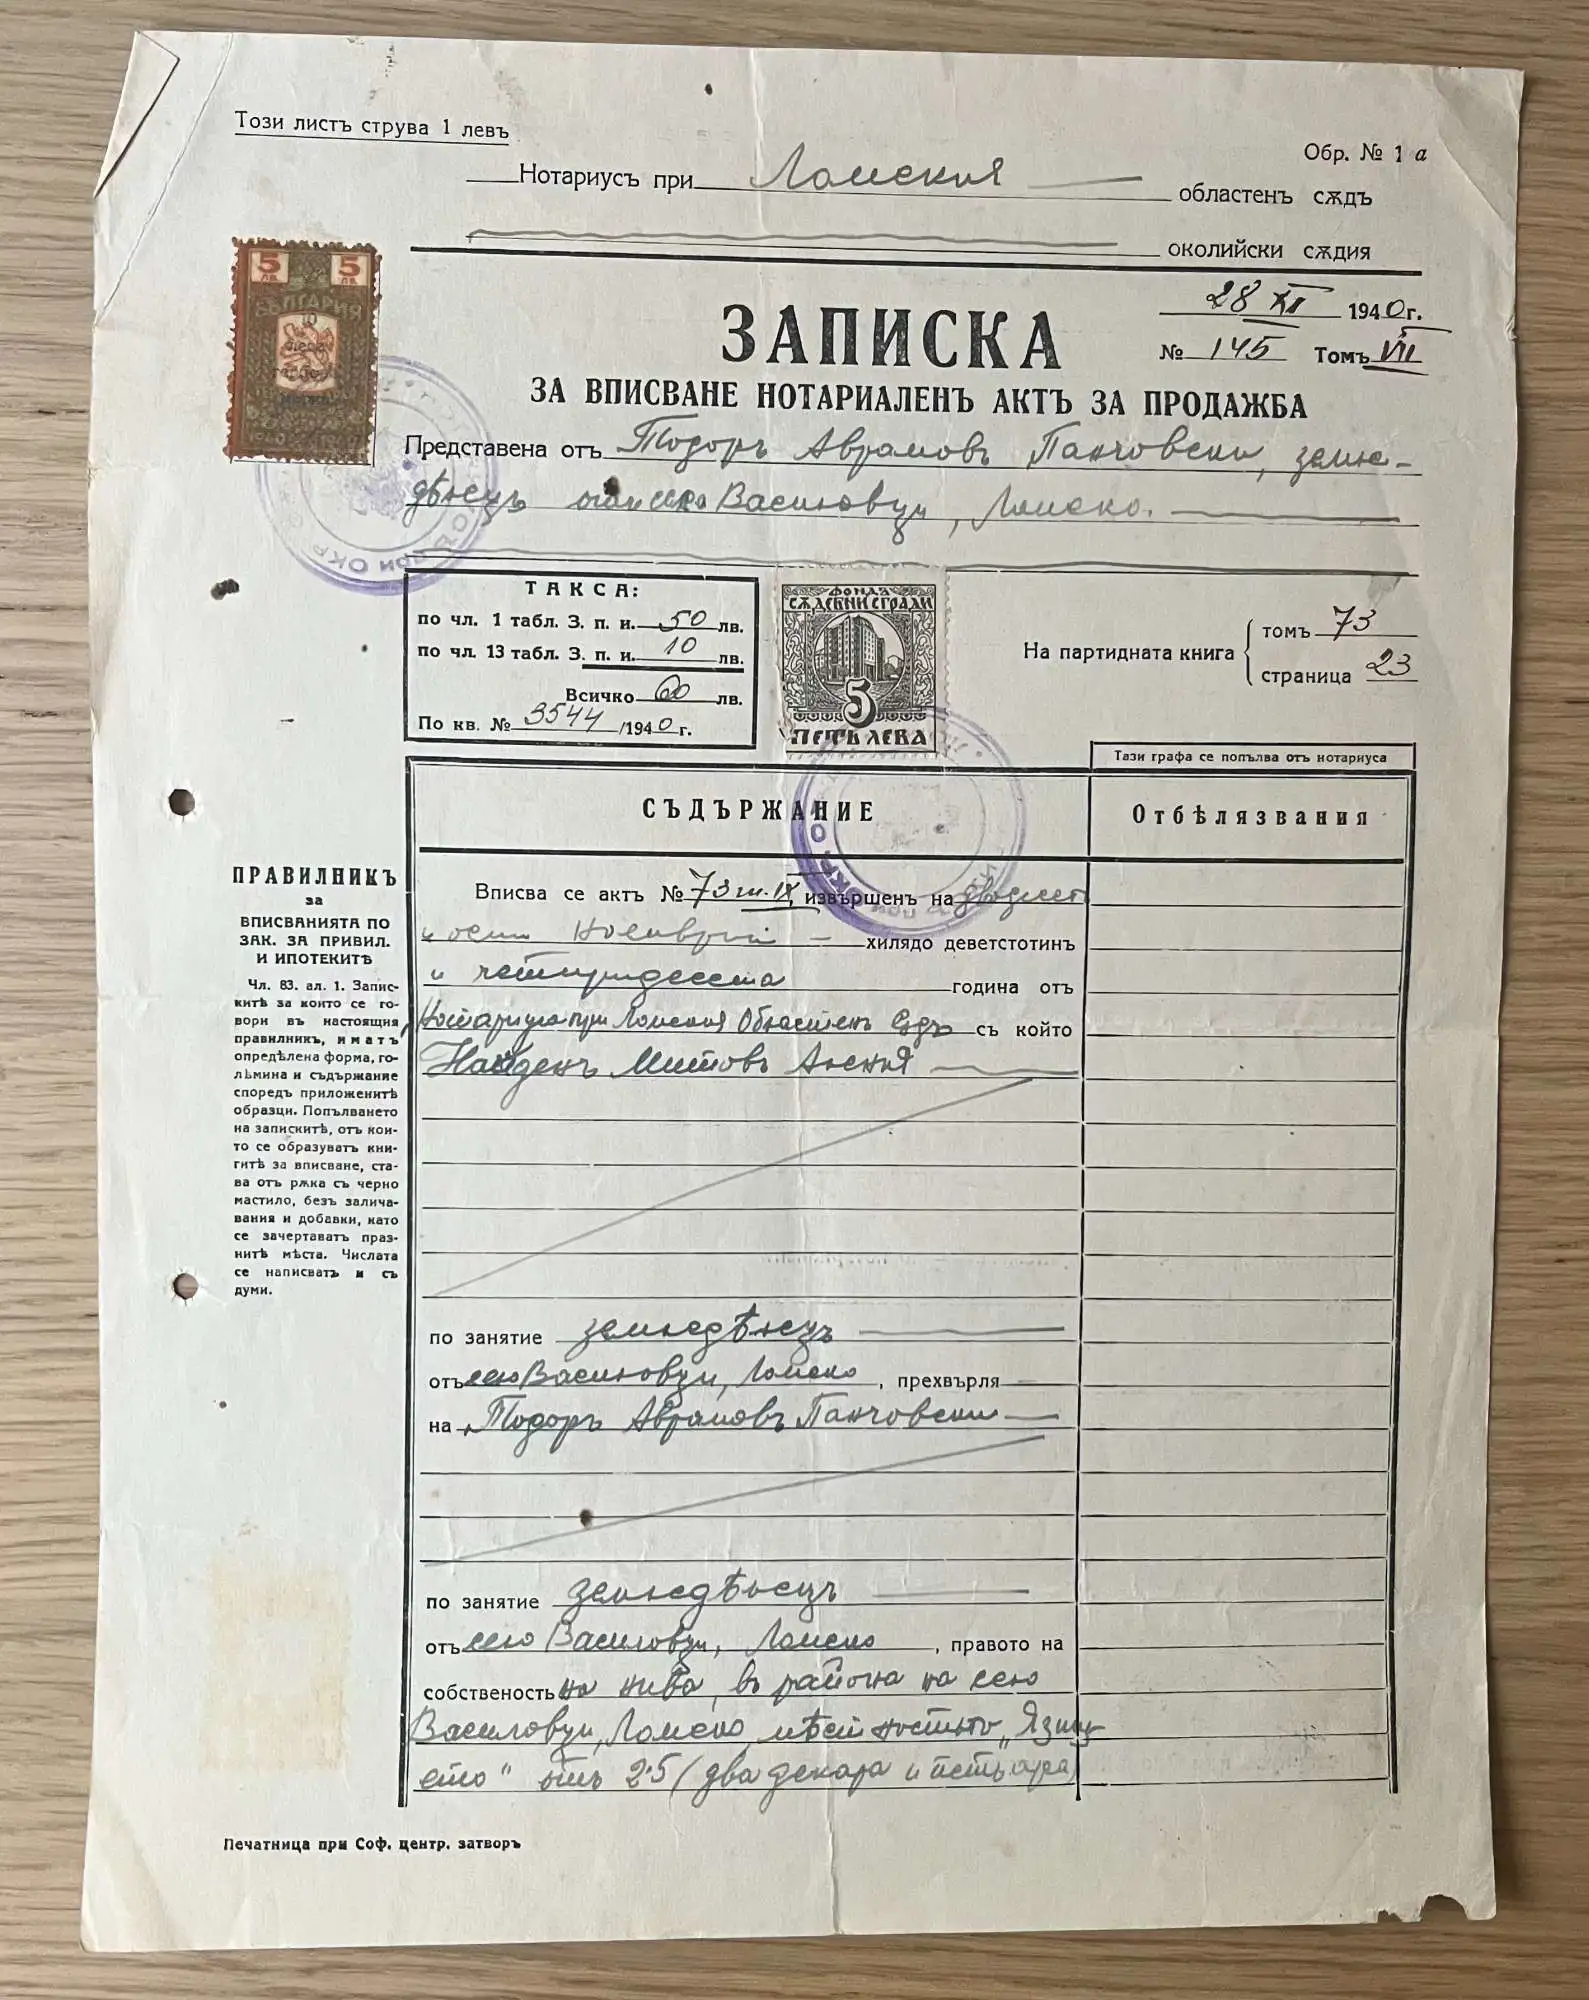 Този листъ струва 1 левъ
Обр. № 1 а
Нотариусъ при Ломския областенъ сѫдъ
околийски сѫдия
5 ЛВ. 5 ЛВ.
БЪЛГАРИЯ
28 XI 1940 г.
ЗАПИСКА
№ 145 Томъ VII
ЗА ВПИСВАНЕ НОТАРИАЛЕНЪ АКТЪ ЗА ПРОДАЖБА
Представена отъ Тодоръ Аврамовъ Панчовски, земле-
дѣлецъ Василовци, Ломско.
ТАКСА:
по чл. 1 табл. З. п. и. 50 лв.
по чл. 13 табл. З. п. и. 10 лв.
Всичко 60 лв.
По кв. № 3544/1940 г.
ФОНДЪ
СѪДЕБНИ СГРАДИ
5
ПЕТЬ ЛЕВА
На партидната книга
томъ 73
страница 23
Тази графа се попълва отъ нотариуса
СЪДЪРЖАНИЕ
Отбѣлязвания
ПРАВИЛНИКЪ
за
ВПИСВАНИЯТА ПО
ЗАК. ЗА ПРИВИЛ.
И ИПОТЕКИТѢ
Чл. 83. ал. 1. Запис-
китѣ за които се го-
вори въ настоящия
правилникъ, иматъ
опредѣлена форма, го-
лѣмина и съдържание
споредъ приложенитѣ
образци. Попълването
на запискитѣ, отъ кои-
то се образуватъ кни-
гитѣ за вписване, ста-
ва отъ рѫка съ черно
мастило, безъ залича-
вания и добавки, като
се зачертаватъ праз-
нитѣ мѣста. Числата
се написватъ и съ
думи.
Вписва се актъ № 73 т. IX, извършенъ на двадесет
и осми Ноемврий хилядо деветстотинъ
и четиридесета година отъ
Нотариуса при Ломския Областенъ Сѫдъ съ който
Найденъ Митовъ
по занятие земледѣлецъ
отъ село Василовци, Ломско, прехвърля
на Тодоръ Аврамовъ Панчовски
по занятие земледѣлецъ
отъ село Василовци, Ломско, правото на
собственость на нива, въ района на село
Василовци, Ломско, мѣстностьта „Язи
ето" отъ 2·5 (два декара и петь ара)
Печатница при Соф. центр. затворъ